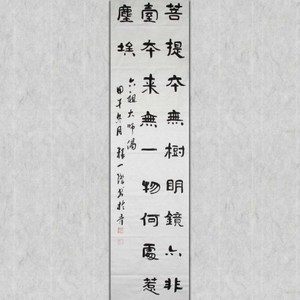 菩提本無樹明鏡亦非
臺本来無一物何處惹
塵埃
六祖大師偈